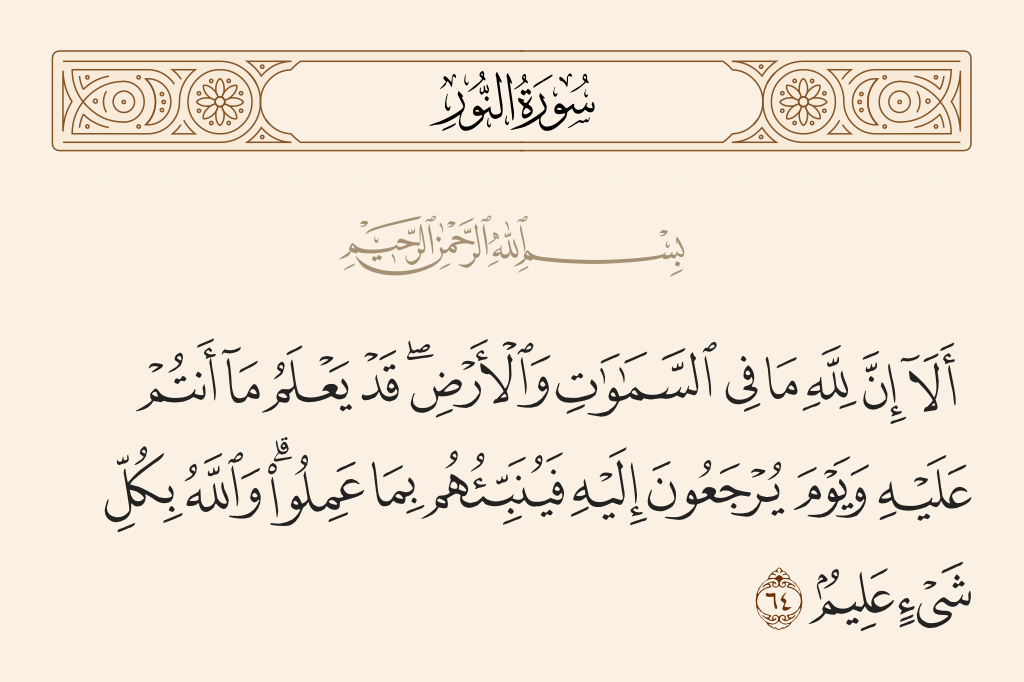 سُورَةُ النُّورِ
بِسْمِ ٱللَّهِ ٱلرَّحْمَٰنِ ٱلرَّحِيمِ
أَلَآ إِنَّ لِلَّهِ مَا فِى ٱلسَّمَٰوَٰتِ وَٱلْأَرْضِ ۖ قَدْ يَعْلَمُ مَآ أَنتُمْ
عَلَيْهِ وَيَوْمَ يُرْجَعُونَ إِلَيْهِ فَيُنَبِّئُهُم بِمَا عَمِلُوا۟ ۗ وَٱللَّهُ بِكُلِّ
شَىْءٍ عَلِيمٌۢ ٦٤